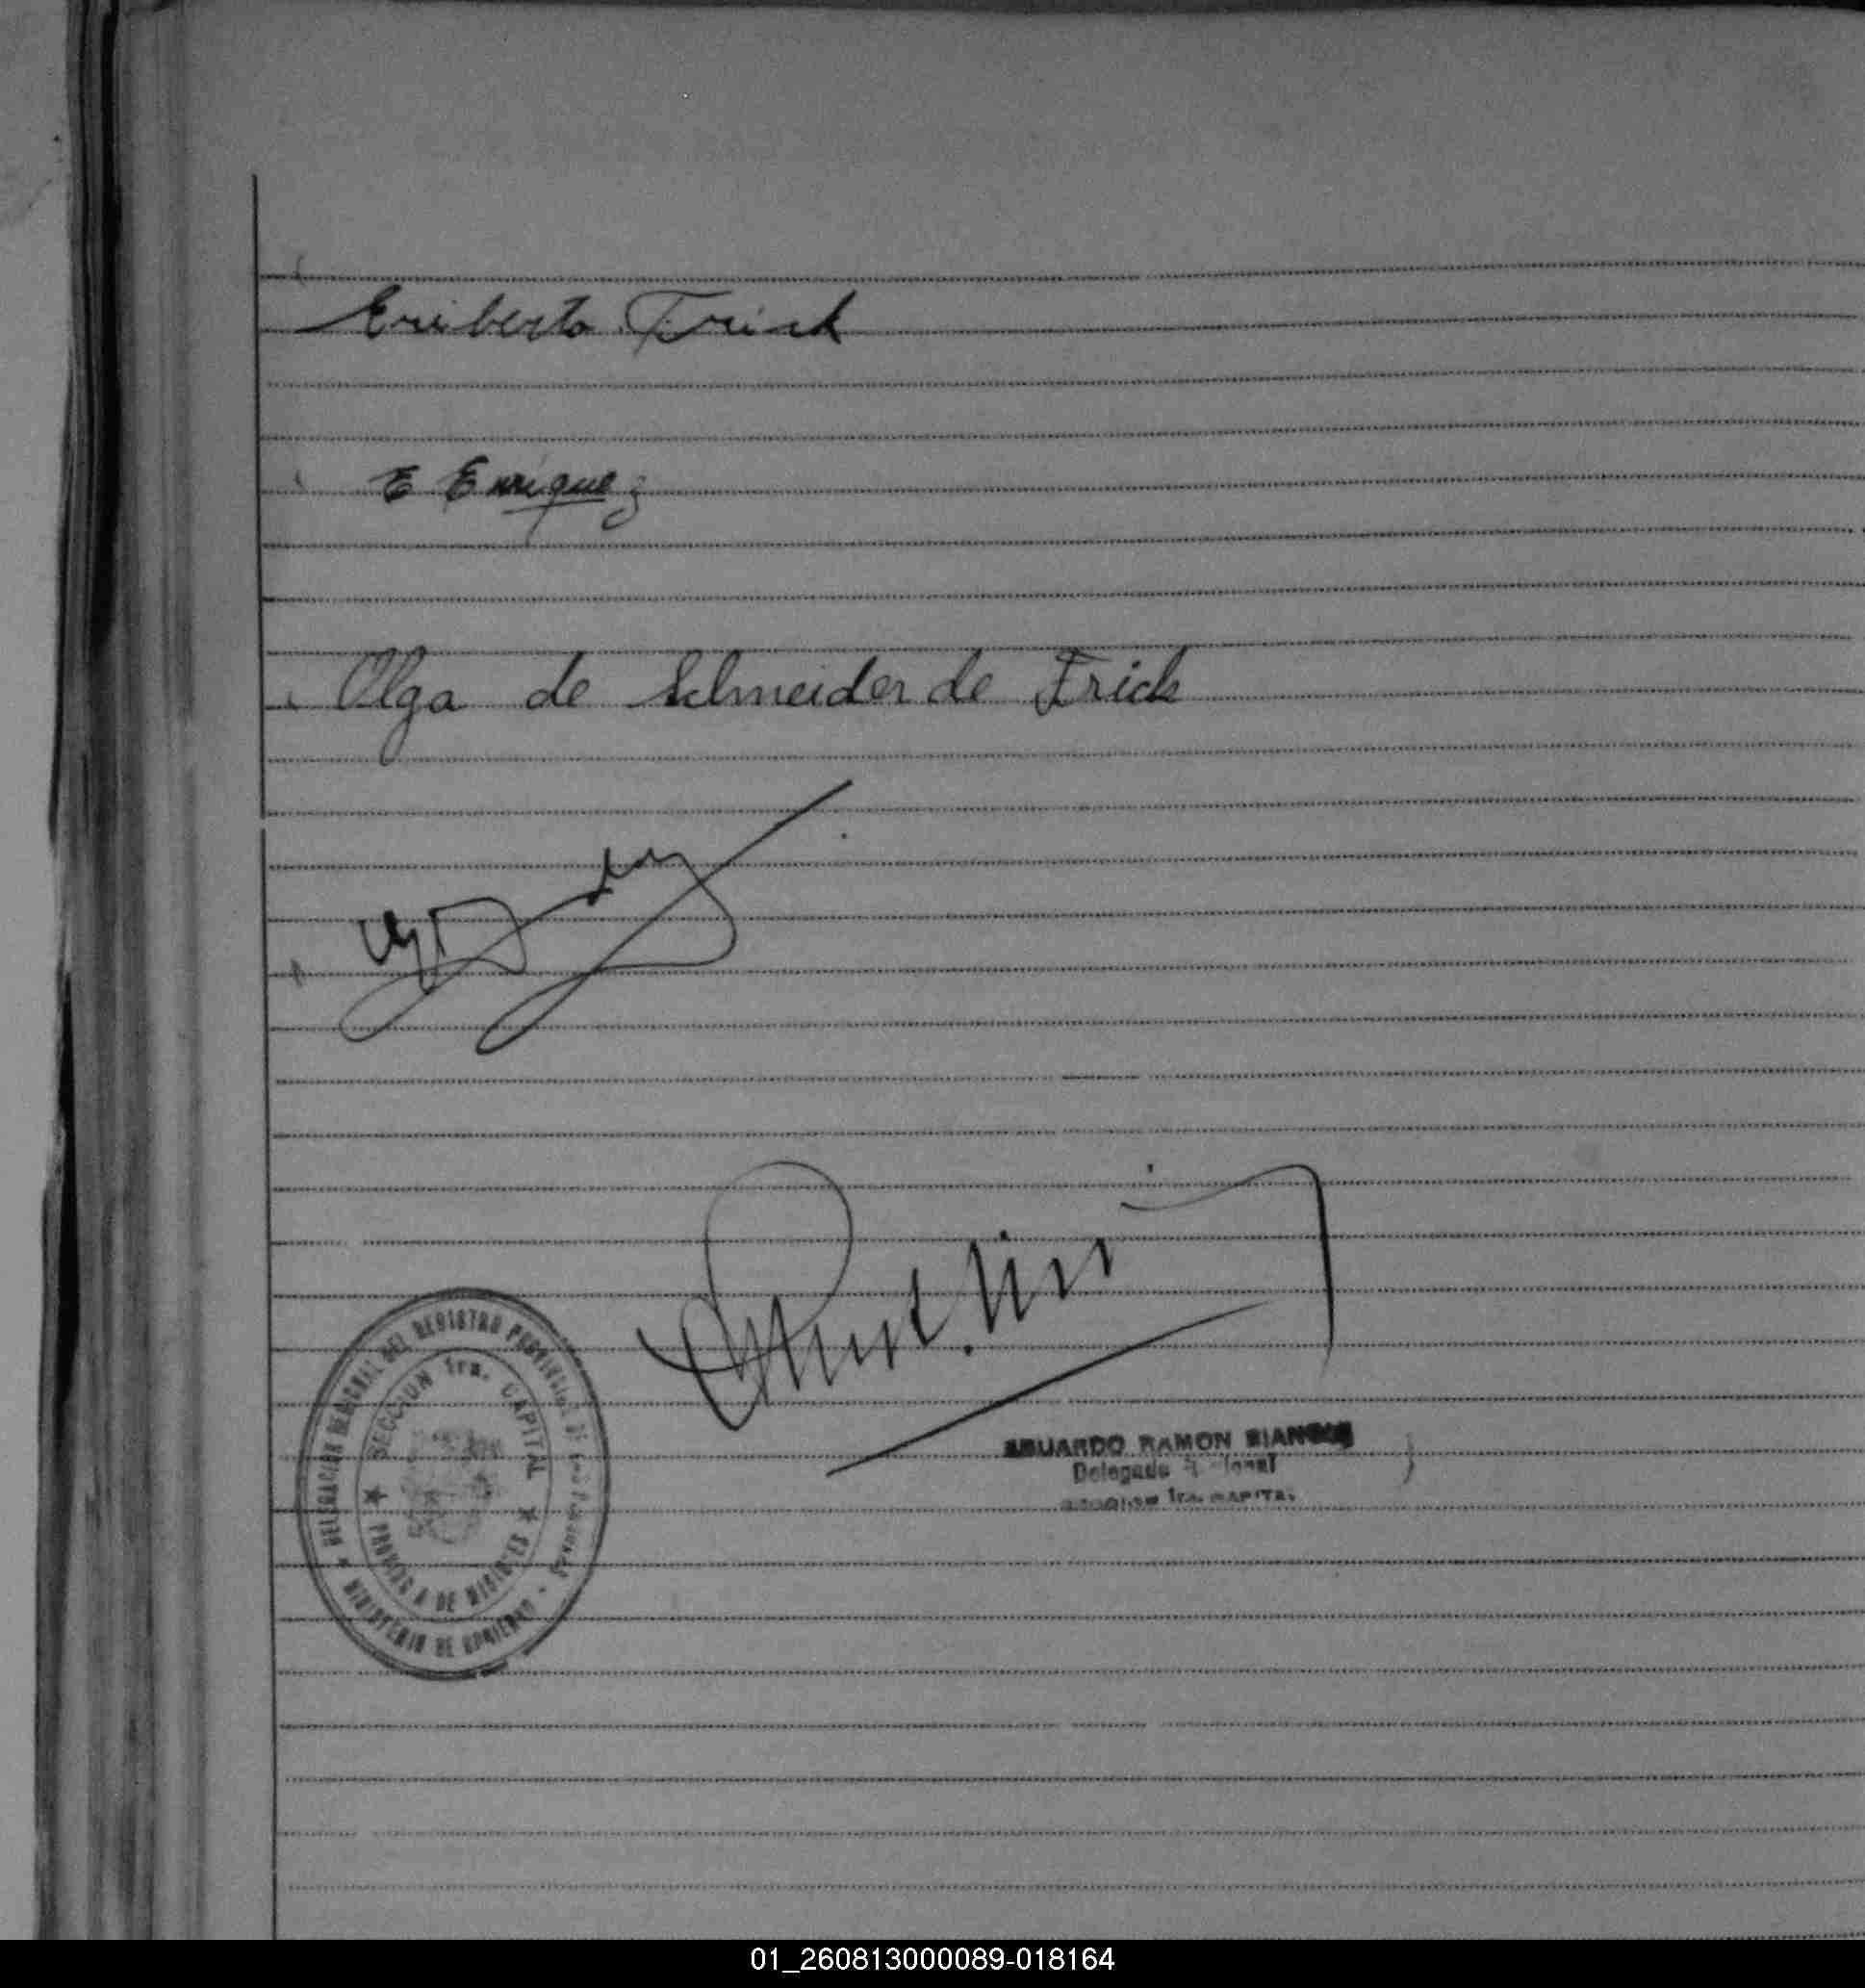 Eriberto Frick
E Enriquez
Olga de Schneider de Frick
EDUARDO RAMON
Delegado
SECCION 1ra. CAPITAL
DELEGACION REGIONAL DEL REGISTRO PROVINCIAL DE LAS PERSONAS
SECCION 1ra. CAPITAL
PROVINCIA DE MISIONES
MINISTERIO DE GOBIERNO
01_260813000089-018164